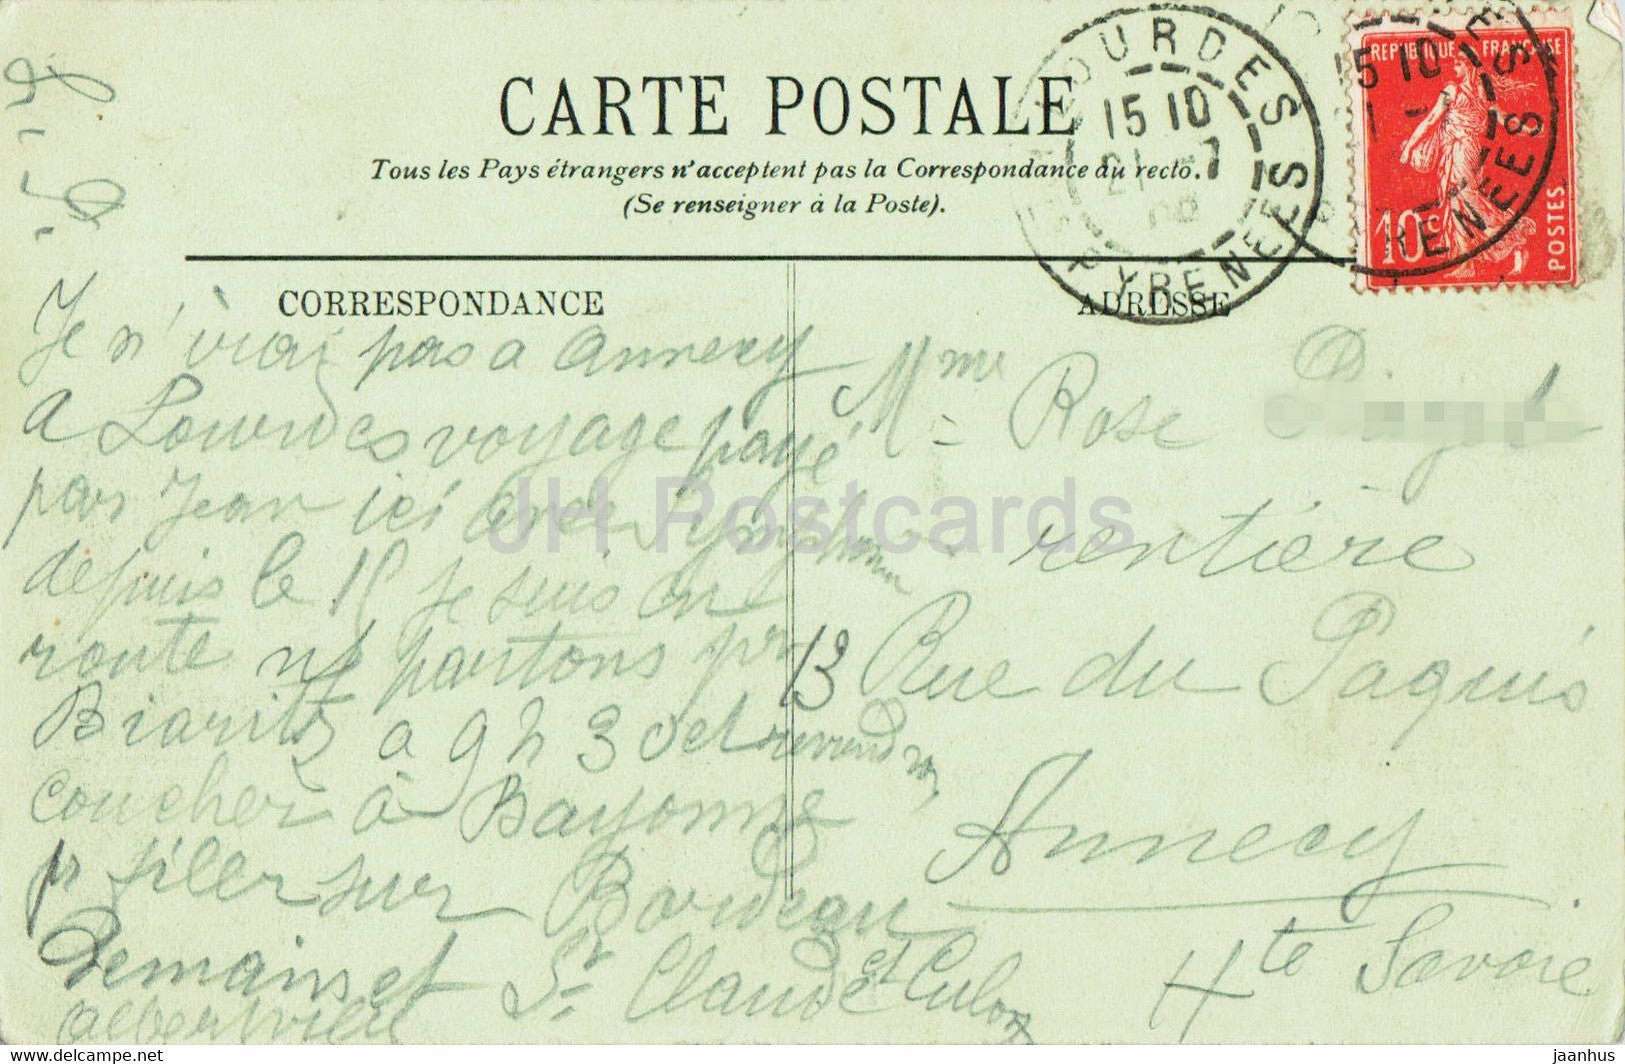 CARTE POSTALE
Tous les Pays étrangers n'acceptent pas la Correspondance au recto.
(Se renseigner à la Poste).
LOURDES
15 10
21 -7
08
PYRENEES
REPUBLIQUE FRANÇAISE
15 10
RENEES
10c
POSTES
CORRESPONDANCE
ADRESSE
Je n'irai pas a Annecy
a Lourdes voyage payé
par Jean ici avec
depuis le 18 je suis en
route ns partons pr
Biaritz a 9 h 30 et reviendrons
coucher à Bayonne
pr filer sur Bordeau
Demain et St Claude et
albertville
Mme Rose
rentière
13 Rue du Paquis
Annecy
Hte Savoie
JH Postcards
www.delcampe.net
jaanhus